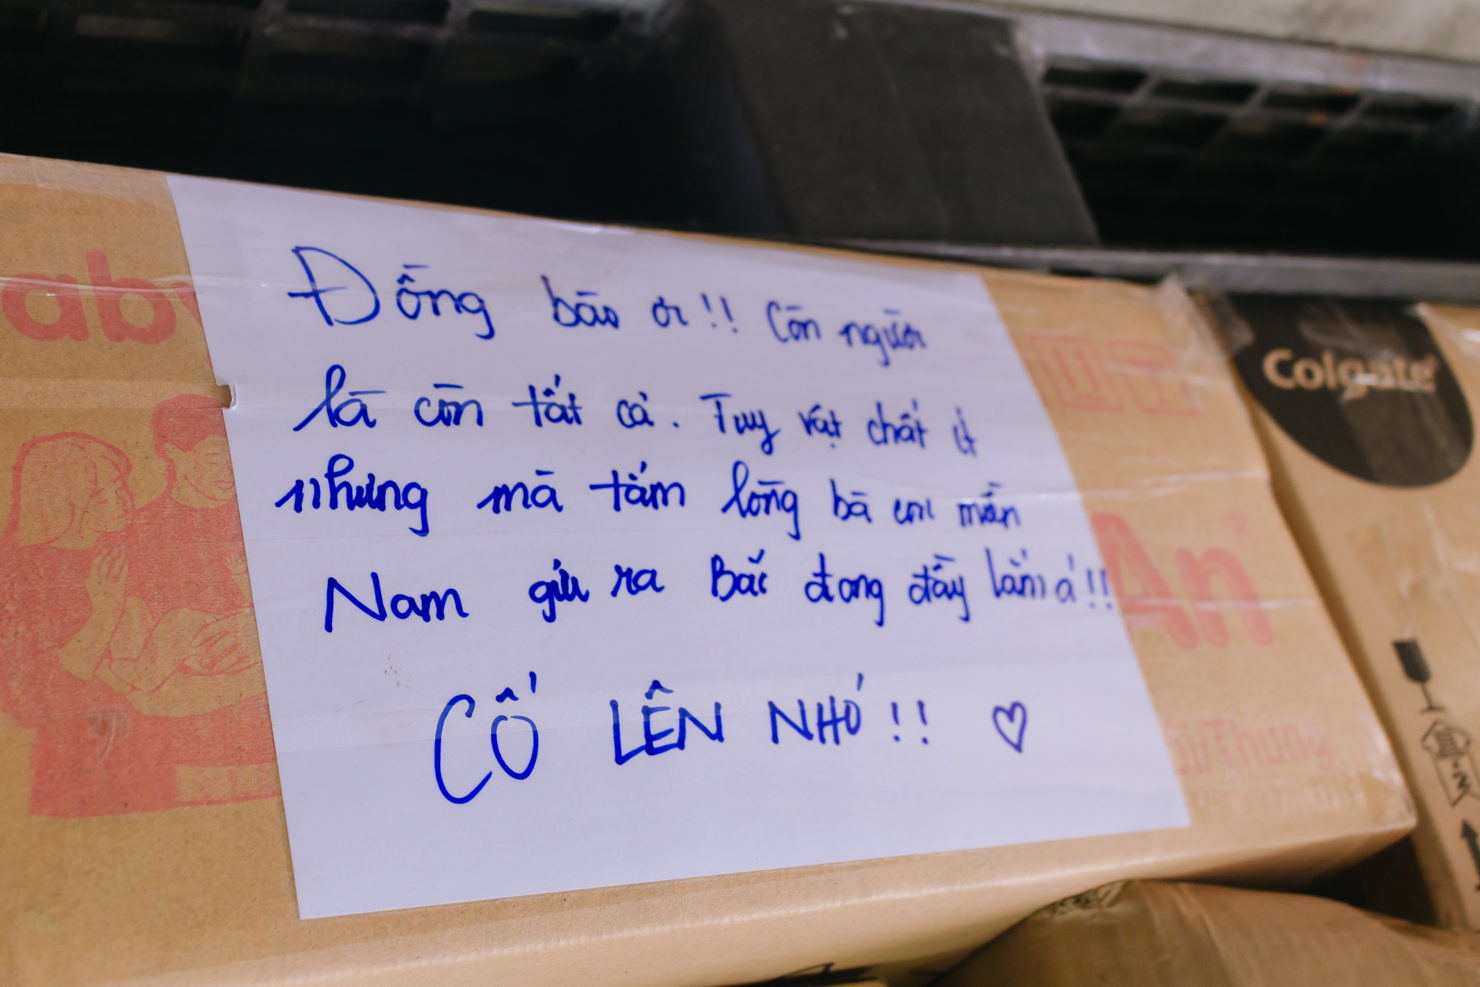 Đồng bào ơi!! Còn người
là còn tất cả. Tuy vật chất ít
nhưng mà tấm lòng bà con miền
Nam gửi ra Bắc đong đầy lắm á!!
CỐ LÊN NHÓ!! ♡
aby
An
Colgate